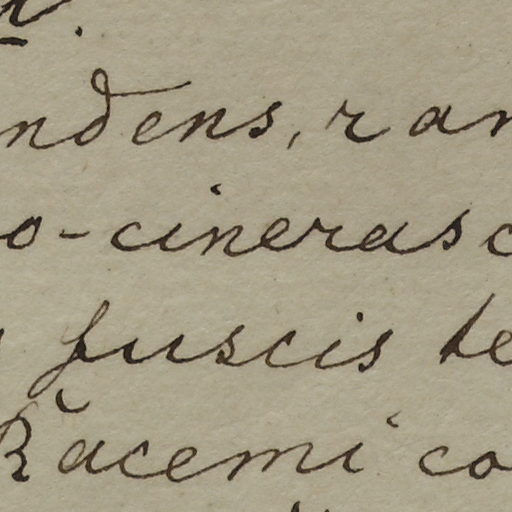 ndens, ran
o-cinerasc
fuscis te
Racemi co